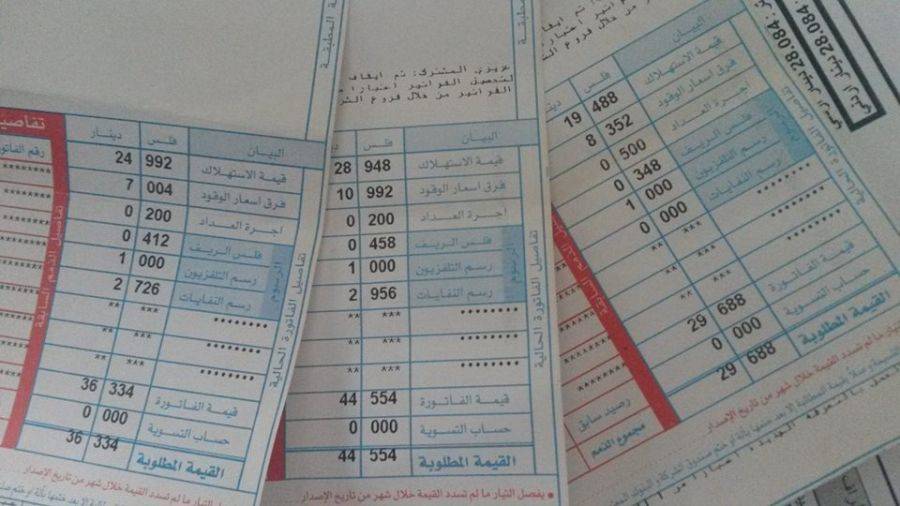 البيان فلس دينار
قيمة الاستهلاك 992 24
فرق اسعار الوقود 004 7
اجرة العداد 200 0
فلس الريف 412 0
رسم التلفزيون 000 1
رسم النفايات 726 2
******** *** **
******** *** **
******** *** **
قيمة الفاتورة 334 36
حساب التسوية 000 0
القيمة المطلوبة 334 36
الرسوم
تفاصيل الفاتورة الحالية
تفاصيل الذمم السابقة
رقم الفاتورة
عزيزي المشترك: تم ايقاف
لتحصيل الفواتير اعتبارا م
الفواتير من خلال فروع الشر
البيان فلس دينار
قيمة الاستهلاك 948 28
فرق اسعار الوقود 992 10
اجرة العداد 200 0
فلس الريف 458 0
رسم التلفزيون 000 1
رسم النفايات 956 2
******** *** **
******** *** **
******** *** **
قيمة الفاتورة 554 44
حساب التسوية 000 0
القيمة المطلوبة 554 44
الرسوم
تفاصيل الفاتورة الحالية
• يفصل التيار ما لم تسدد القيمة خلال شهر من تاريخ الإصدار
البيان فلس
قيمة الاستهلاك 488 19
فرق اسعار الوقود 352 8
اجرة العداد 500 0
فلس الريف 348 0
رسم التلفزيون 000 1
رسم النفايات 000 0
******** *** **
******** *** **
******** *** **
قيمة الفاتورة 688 29
حساب التسوية 000 0
القيمة المطلوبة 688 29
رصيد سابق
مجموع الذمم
28.084
28.084